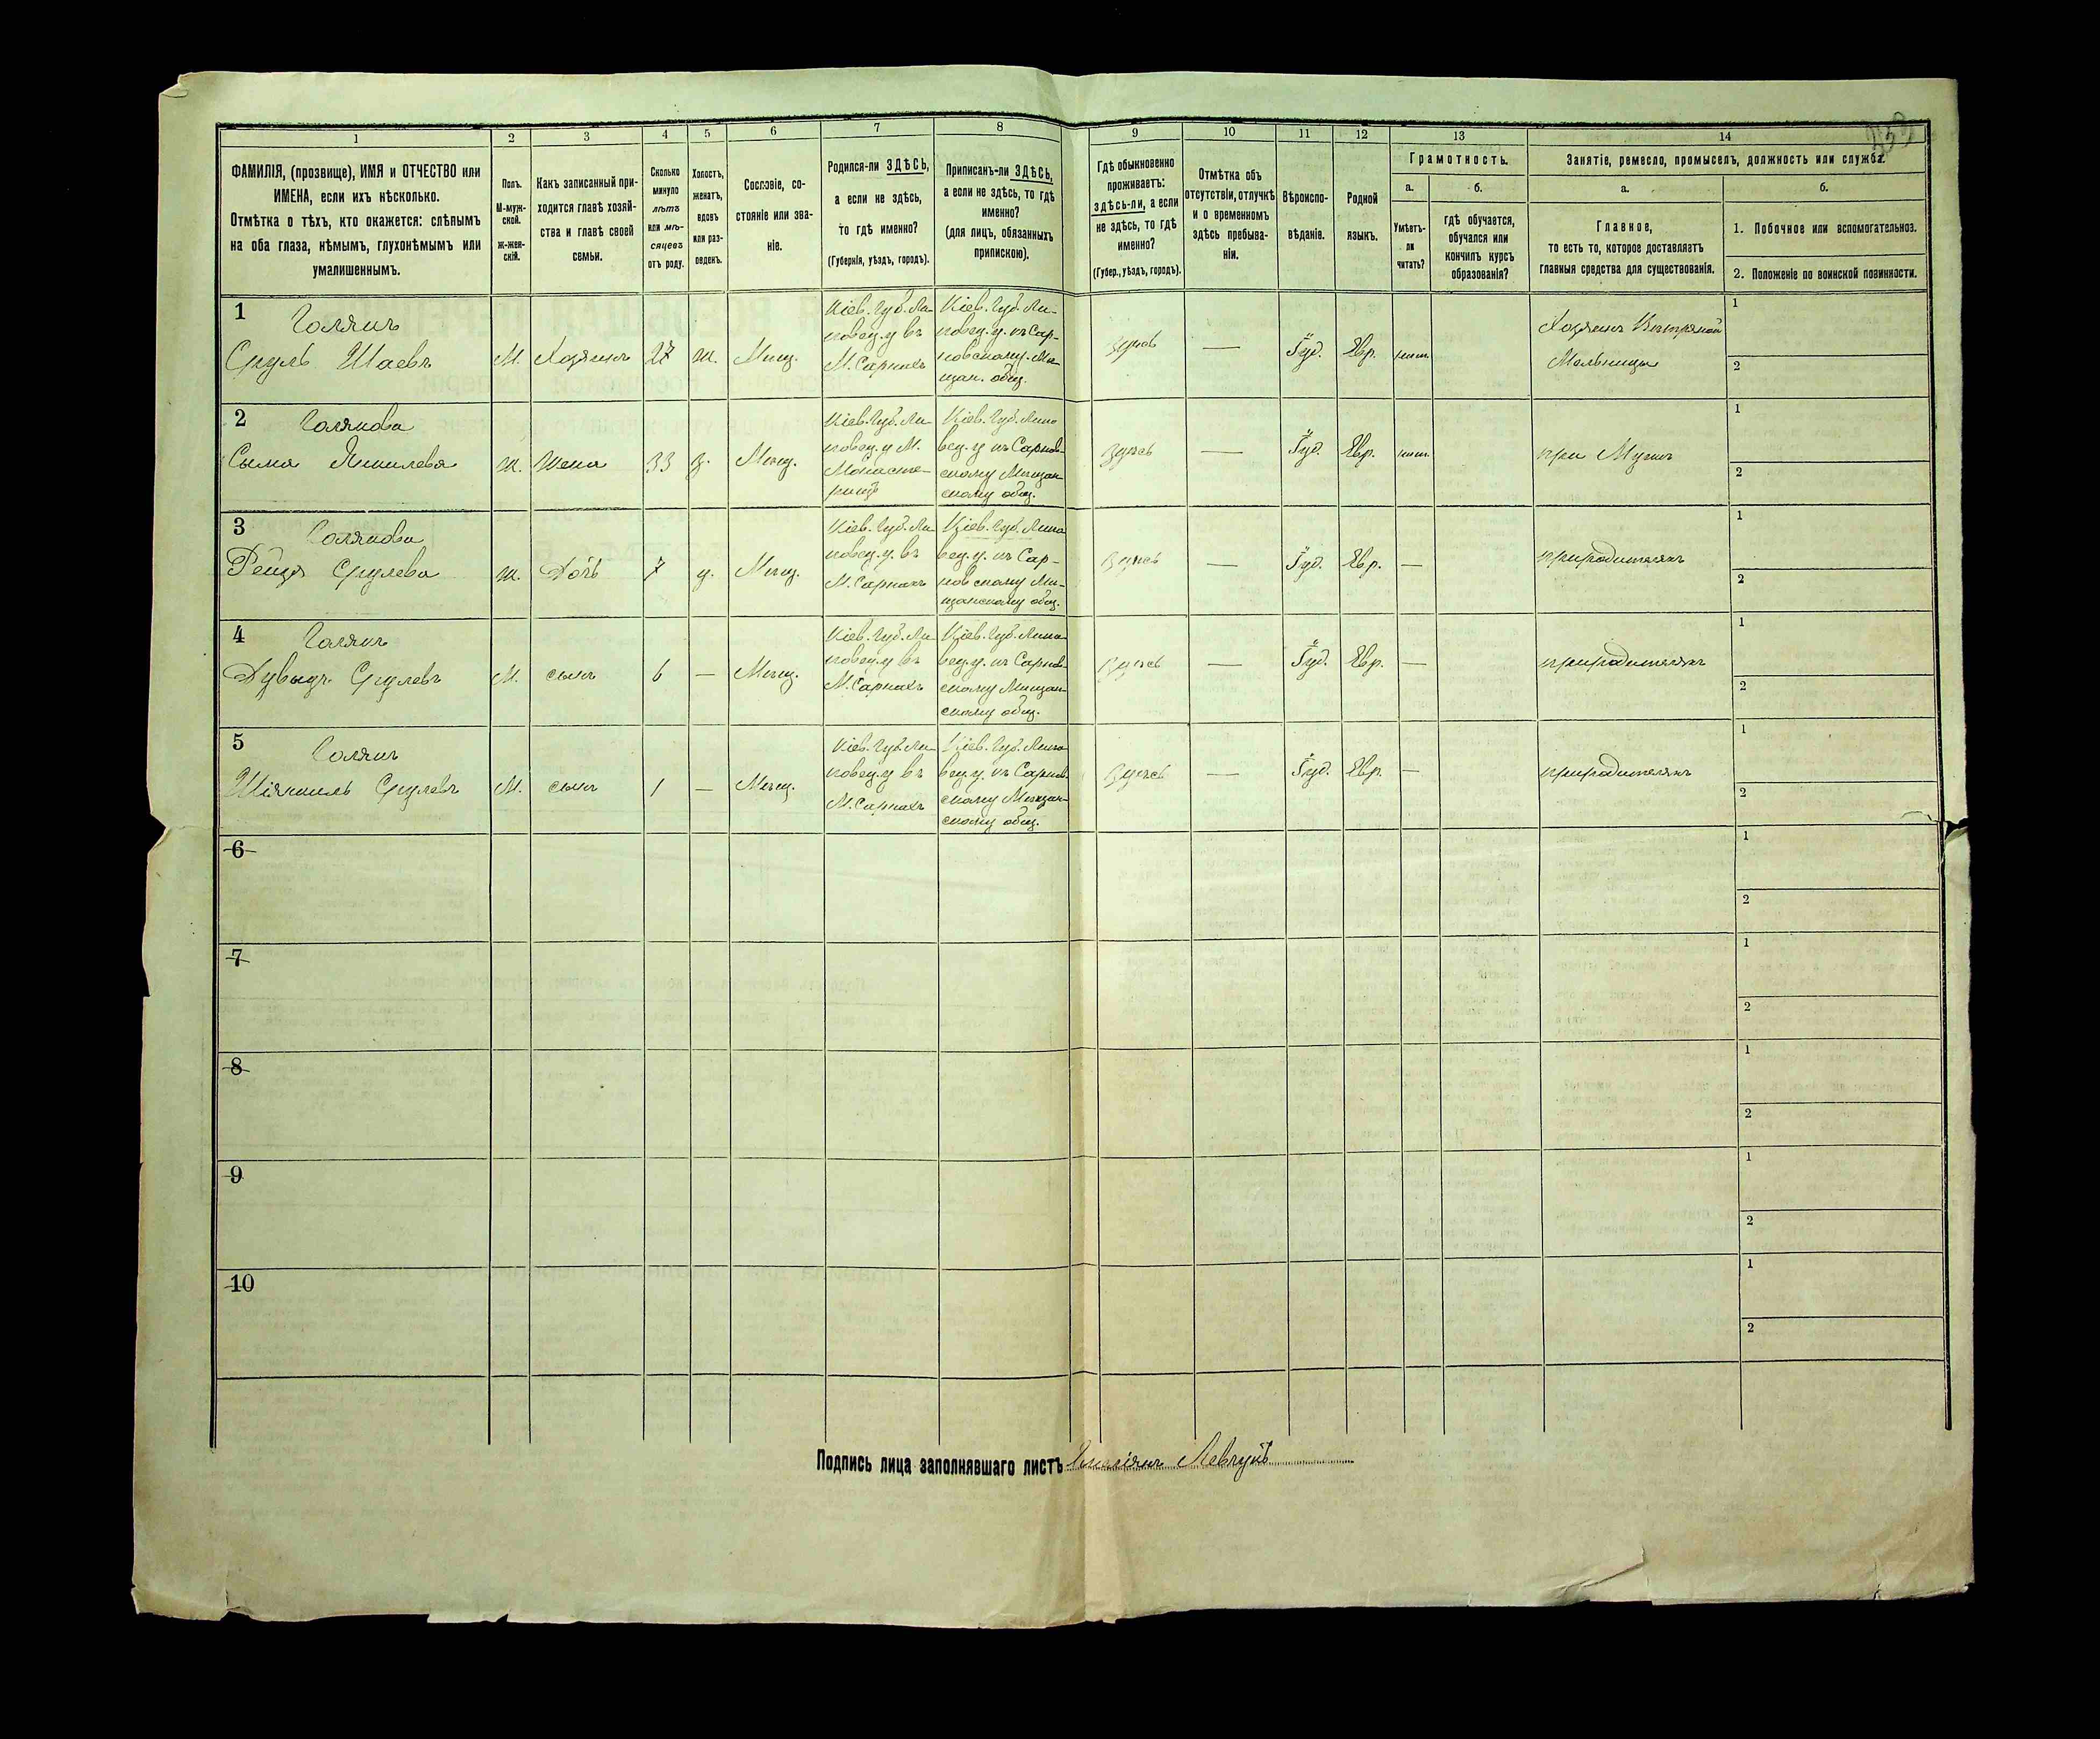 253
1 2 3 4 5 6 7 8 9 10 11 12 13 14
ФАМИЛІЯ, (прозвище), ИМЯ и ОТЧЕСТВО или
ИМЕНА, если ихъ нѣсколько.
Отмѣтка о тѣхъ, кто окажется: слѣпымъ
на оба глаза, нѣмымъ, глухонѣмымъ или
умалишеннымъ.
Полъ.
М-муж-
ской.
ж-жен-
скій.
Какъ записанный при-
ходится главѣ хозяй-
ства и главѣ своей
семьи.
Сколько
минуло
лѣтъ
или мѣ-
сяцевъ
отъ роду.
Холостъ,
женатъ,
вдовъ
или раз-
веденъ.
Сословіе, со-
стояніе или зва-
ніе.
Родился-ли ЗДѢСЬ,
а если не здѣсь,
то гдѣ именно?
(Губернія, уѣздъ, городъ).
Приписанъ-ли ЗДѢСЬ,
а если не здѣсь, то гдѣ
именно?
(для лицъ, обязанныхъ
припискою).
Гдѣ обыкновенно
проживаетъ:
здѣсь-ли, а если
не здѣсь, то гдѣ
именно?
(Губер., уѣздъ, городъ).
Отмѣтка объ
отсутствіи, отлучкѣ
и о временномъ
здѣсь пребыва-
ніи.
Вѣроиспо-
вѣданіе.
Родной
языкъ.
Грамотность.
а.
Умѣетъ-
ли
читать?
б.
гдѣ обучается,
обучался или
кончилъ курсъ
образованія?
Занятіе, ремесло, промыселъ, должность или служба.
а.
Главное,
то есть то, которое доставляетъ
главныя средства для существованія.
б.
1. Побочное или вспомогательное.
2. Положеніе по воинской повинности.
1
Голякъ
Сруль Шаевъ
М.
Хозяинъ
27
ж.
Мещ.
Кіев. Губ. Ли-
повец. у въ
М. Сарнахъ
Кіев. Губ. Ли-
повец. у. къ Сар-
новскому. Ме-
щан. общ.
Здѣсь
—
Іуд.
Евр.
нѣт.
Хозяинъ Вѣтряной
Мельницы
1
2
2
Голякова
Сима
ж.
Жена
33
з.
Мещ.
Кіев. Губ. Ли-
повец. у М.
Монасте-
рищѣ
Кіев. Губ. Липо
вец. у къ Сарнов-
скому Мещан-
скому общ.
Здѣсь
—
Іуд.
Евр.
нѣт.
при Мужѣ
1
2
3
Голякова
Рейзя Срулева
ж.
Дочь
7
д.
Мещ.
Кіев. Губ. Ли-
повец. у. въ
М. Сарнахъ
Кіев. Губ. Липо
вец. у. къ Сар-
новскому Ме-
щанскому общ.
Здѣсь
—
Іуд.
Евр.
—
при родителях
1
2
4
Голякъ
Дувыдъ Срулевъ
М.
сынъ
6
—
Мещ.
Кіев. Губ. Ли-
повец. у въ
М. Сарнахъ
Кіев. Губ. Липо-
вец. у. къ Сарнов-
скому Мещан-
скому общ.
Здѣсь
—
Іуд.
Евр.
—
при родителях
1
2
5
Голякъ
Срулевъ
М.
сынъ
1
—
Мещ.
Кіев. Губ. Ли-
повец. у въ
М. Сарнахъ
Кіев. Губ. Липо-
вец. у. къ Сарнов-
скому Мещан-
скому общ.
Здѣсь
—
Іуд.
Евр.
—
при родителях
1
2
6
1
2
7
1
2
8
1
2
9
1
2
10
1
2
Подпись лица заполнявшаго листъ Левчукъ